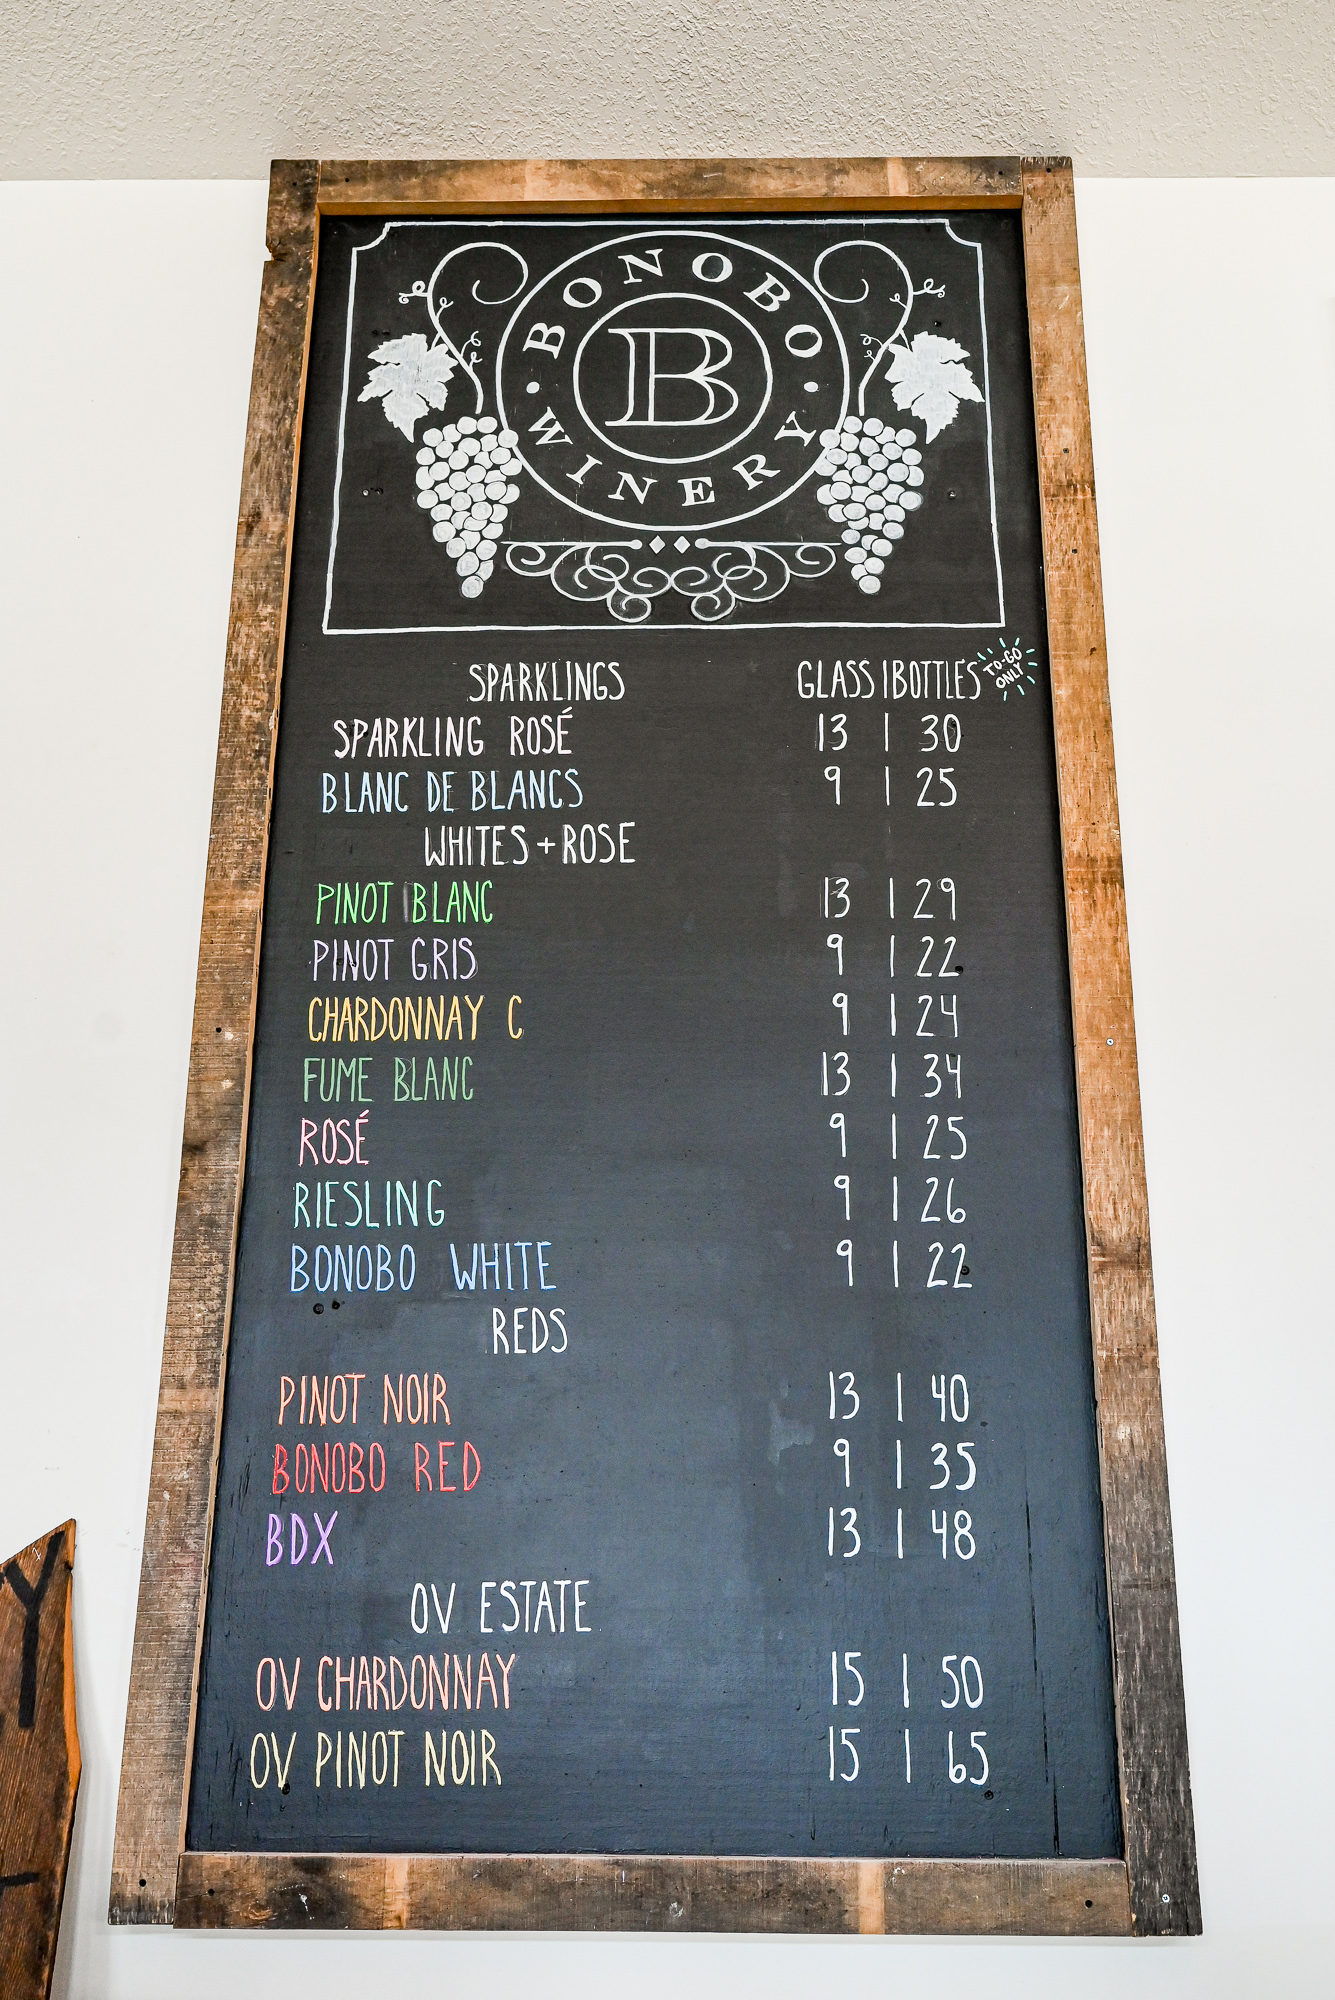 BONOBO
B
WINERY
SPARKLINGS GLASS | BOTTLES TO-GO ONLY
SPARKLING ROSÉ 13 | 30
BLANC DE BLANCS 9 | 25
WHITES + ROSE
PINOT BLANC 13 | 29
PINOT GRIS 9 | 22
CHARDONNAY C 9 | 24
FUME BLANC 13 | 34
ROSÉ 9 | 25
RIESLING 9 | 26
BONOBO WHITE 9 | 22
REDS
PINOT NOIR 13 | 40
BONOBO RED 9 | 35
BDX 13 | 48
OV ESTATE
OV CHARDONNAY 15 | 50
OV PINOT NOIR 15 | 65
Y